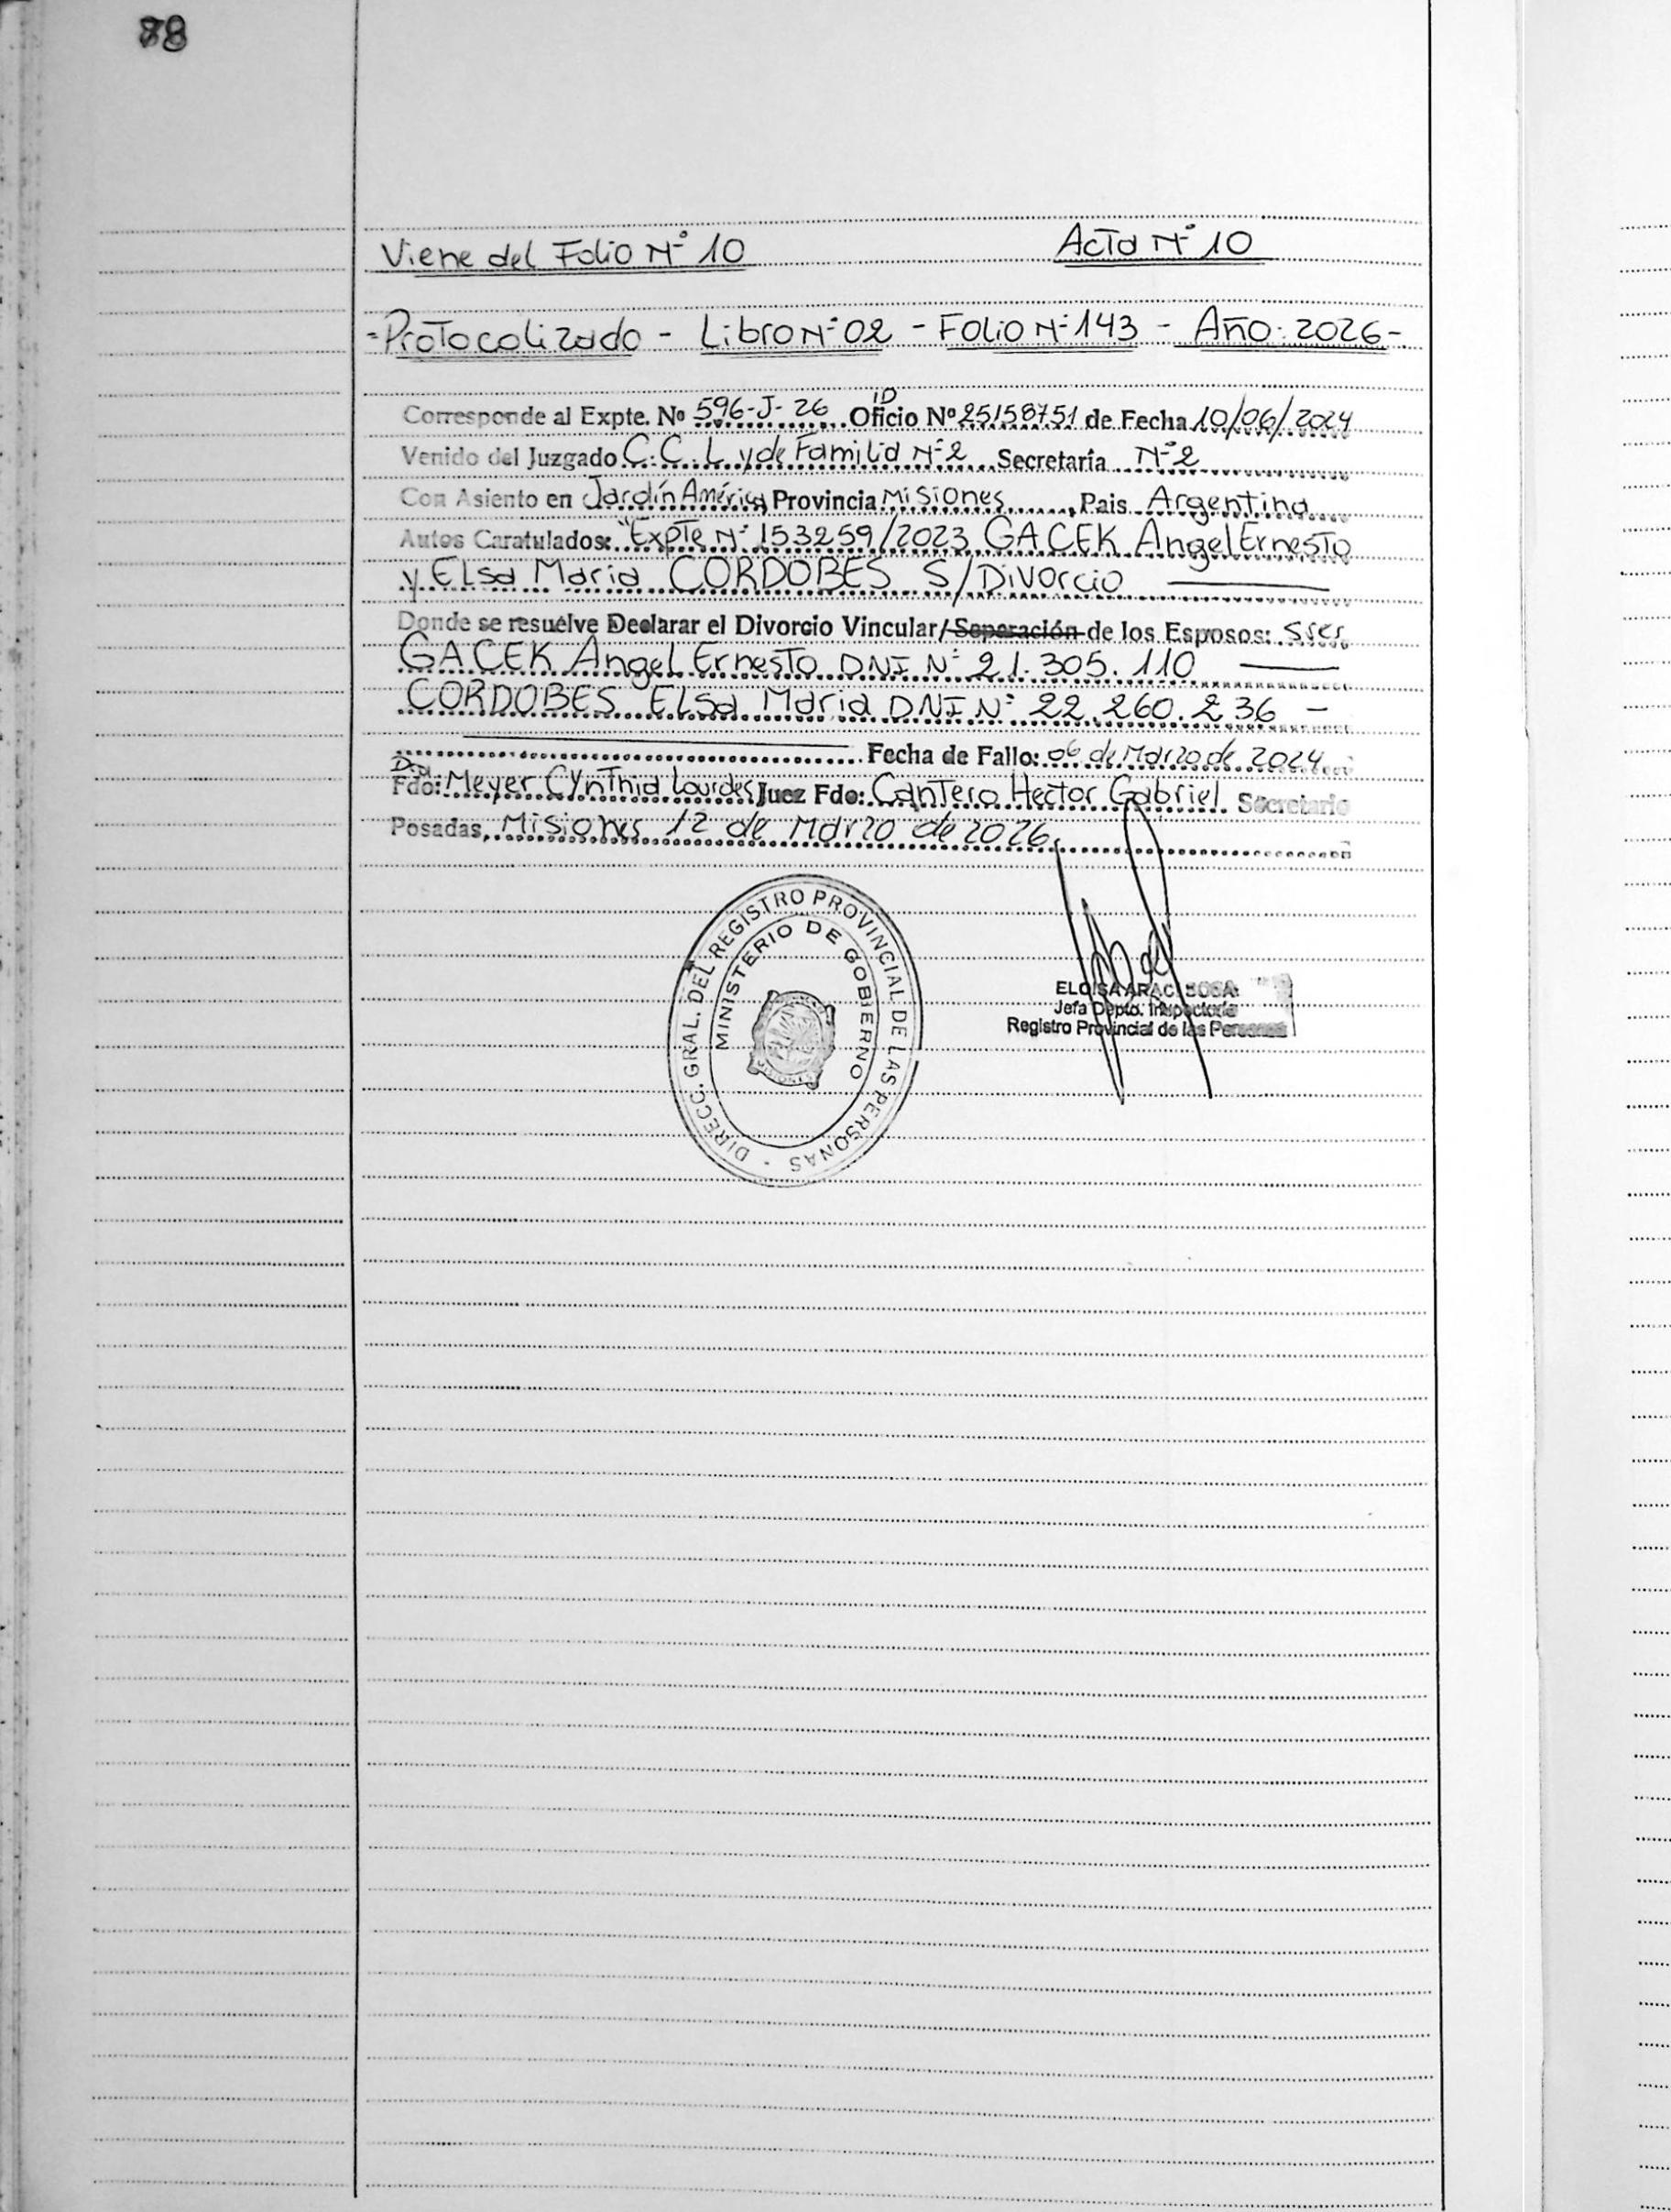 88
Viene del Folio Nº 10 Acta Nº 10
-Protocolizado - Libro Nº 02 - Folio Nº 143 - Año: 2026-
ID
Corresponde al Expte. Nº 596-J-26 Oficio Nº 25158751 de Fecha 10/06/2024
Venido del Juzgado C.C.L y de Familia Nº 2 Secretaría Nº 2
Con Asiento en Jardín América Provincia Misiones Pais Argentina
Autos Caratulados: "Expte Nº 153259/2023 GACEK Angel Ernesto
y Elsa Maria CORDOBES S/Divorcio
Donde se resuelve Declarar el Divorcio Vincular/Separación de los Esposos: Sres
GACEK Angel Ernesto DNI Nº 21.305.110
CORDOBES Elsa Maria DNI Nº 22.260.236 -
Fecha de Fallo: 06 de Marzo de 2024
Dra
Fdo: Meyer Cynthia Lourdes Juez Fdo: Cantero Hector Gabriel Secretario
Posadas, Misiones 12 de Marzo de 2026.
DIRECC. GRAL. DEL REGISTRO PROVINCIAL DE LAS PERSONAS -
MINISTERIO DE GOBIERNO
ELOISA ARACI SOSA
Jefa Depto. Inspectoría
Registro Provincial de las Personas